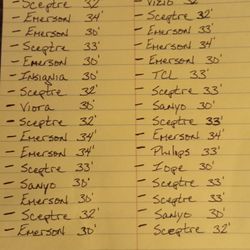 - Sceptre 32'
- Emerson 34'
- Emerson 30'
- Sceptre 33'
- Emerson 30'
- Insignia 30'
- Sceptre 32'
- Viora 30'
- Sceptre 32'
- Emerson 34'
- Emerson 34'
- Sceptre 33'
- Sanyo 30'
- Emerson 30'
- Sceptre 32'
- Emerson 30'
- Vizio 32'
- Sceptre 32'
- Emerson 33'
- Emerson 34'
- Emerson 30'
- TCL 33'
- Sceptre 33'
- Sanyo 30'
- Sceptre 33'
- Emerson 34'
- Philips 33'
- Iope 30'
- Sceptre 33'
- Sceptre 33'
- Sanyo 30'
- Sceptre 32'